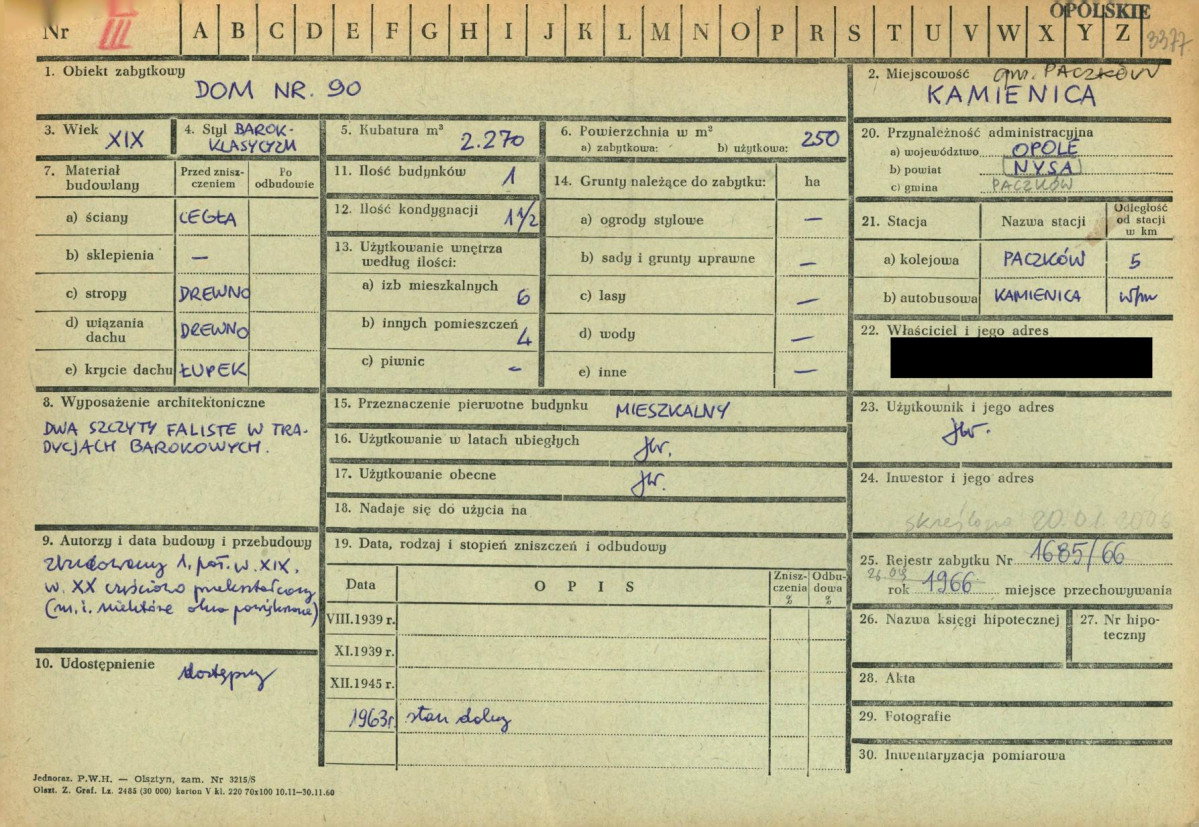 Nr III A B C D E F G H I J K L M N O P R S T U V W X Y Z
OPOLSKIE
3377
1. Obiekt zabytkowy
DOM NR. 90
2. Miejscowość gm. PACZKÓW
KAMIENICA
3. Wiek XIX
4. Styl BAROK-
KLASYCYZM
5. Kubatura m³ 2.270
6. Powierzchnia w m²
a) zabytkowa: b) użytkowa: 250
7. Materiał budowlany
Przed znisz-
czeniem
Po
odbudowie
a) ściany CEGŁA
b) sklepienia —
c) stropy DREWNO
d) wiązania
dachu DREWNO
e) krycie dachu ŁUPEK
8. Wyposażenie architektoniczne
DWA SZCZYTY FALISTE W TRA-
DYCJACH BAROKOWYCH.
9. Autorzy i data budowy i przebudowy
zbudowany 1. poł. w. XIX,
w. XX częściowo przekształcony
(m. i. niektóre okna powiększone)
10. Udostępnienie dostępny
11. Ilość budynków 1
12. Ilość kondygnacji 1 1/2
13. Użytkowanie wnętrza
według ilości:
a) izb mieszkalnych 6
b) innych pomieszczeń 4
c) piwnic -
14. Grunty należące do zabytku: ha
a) ogrody stylowe —
b) sady i grunty uprawne —
c) lasy —
d) wody —
e) inne —
15. Przeznaczenie pierwotne budynku MIESZKALNY
16. Użytkowanie w latach ubiegłych jw.
17. Użytkowanie obecne jw.
18. Nadaje się do użycia na
19. Data, rodzaj i stopień zniszczeń i odbudowy
Data OPIS Znisz-
czenia
%
Odbu-
dowa
%
VIII.1939 r.
XI.1939 r.
XII.1945 r.
1963r. stan dobry
20. Przynależność administracyjna
a) województwo OPOLE
b) powiat NYSA
c) gmina PACZKÓW
21. Stacja Nazwa stacji Odległość
od stacji
w km
a) kolejowa PACZKÓW 5
b) autobusowa KAMIENICA w/m
22. Właściciel i jego adres
23. Użytkownik i jego adres
jw.
24. Inwestor i jego adres
skreślono 20.01.2006
25. Rejestr zabytku Nr 1685/66
26.09
rok 1966 miejsce przechowywania
26. Nazwa księgi hipotecznej
27. Nr hipo-
teczny
28. Akta
29. Fotografie
30. Inwentaryzacja pomiarowa
Jednoraz. P.W.H. — Olsztyn, zam. Nr 3215/S
Olszt. Z. Graf. Lz. 2485 (30 000) karton V kl. 220 70x100 10.11—30.11.60